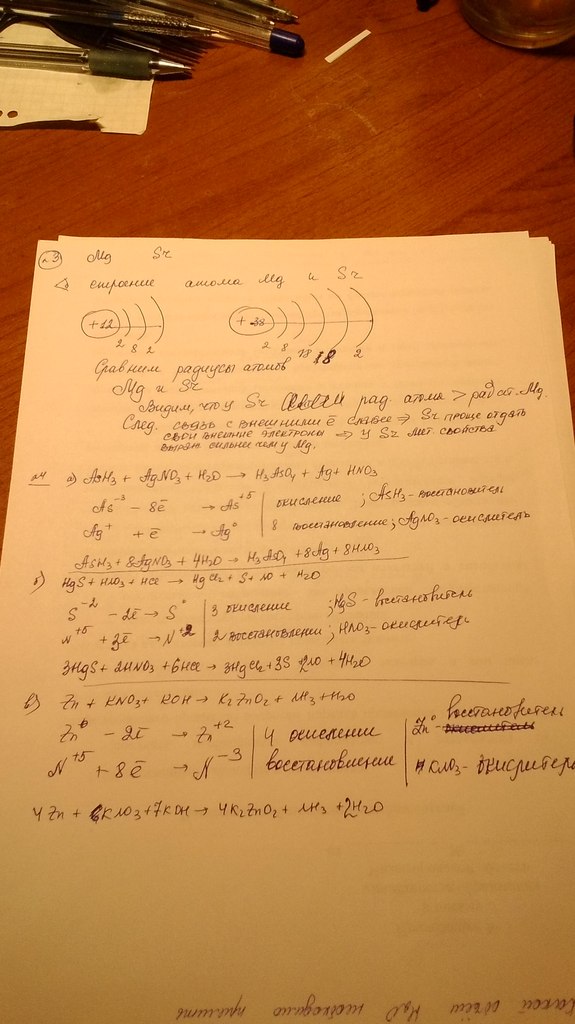 n3 Mg Sr
строение атома Mg и Sr
+12 2 8 2 +38 2 8 18 18 2
Сравним радиусы атомов
Mg и Sr
Видим, что у Sr рад. атома > рад ат. Mg.
След. связь с внешними ē слабее ⇒ Sr проще отдать
свои внешние электроны ⇒ у Sr мет. свойства
выраж сильнее чем у Mg.
n4 а) AsH3 + AgNO3 + H2O → H3AsO4 + Ag + HNO3
As⁻³ - 8ē → As⁺⁵ | окисление ; AsH3 - восстановитель
Ag⁺ + ē → Ag⁰ | 8 восстановление; AgNO3 - окислитель
AsH3 + 8AgNO3 + 4H2O → H3AsO4 + 8Ag + 8HNO3
б) HgS + HNO3 + HCl → HgCl2 + S + NO + H2O
S⁻² - 2ē → S⁰ | 3 окисление ; HgS - восстановитель
N⁺⁵ + 3ē → N⁺² | 2 восстановлении ; HNO3 - окислитель
3HgS + 2HNO3 + 6HCl → 3HgCl2 + 3S 2NO + 4H2O
в) Zn + KNO3 + KOH → K2ZnO2 + NH3 + H2O
Zn⁰ - 2ē → Zn⁺² | 4 окислении | Zn⁰ - восстановитель
N⁺⁵ + 8ē → N⁻³ | восстановление | KNO3 - окислитель
4Zn + KNO3 + 7KOH → 4K2ZnO2 + NH3 + 2H2O
какой объём необходимо прилить